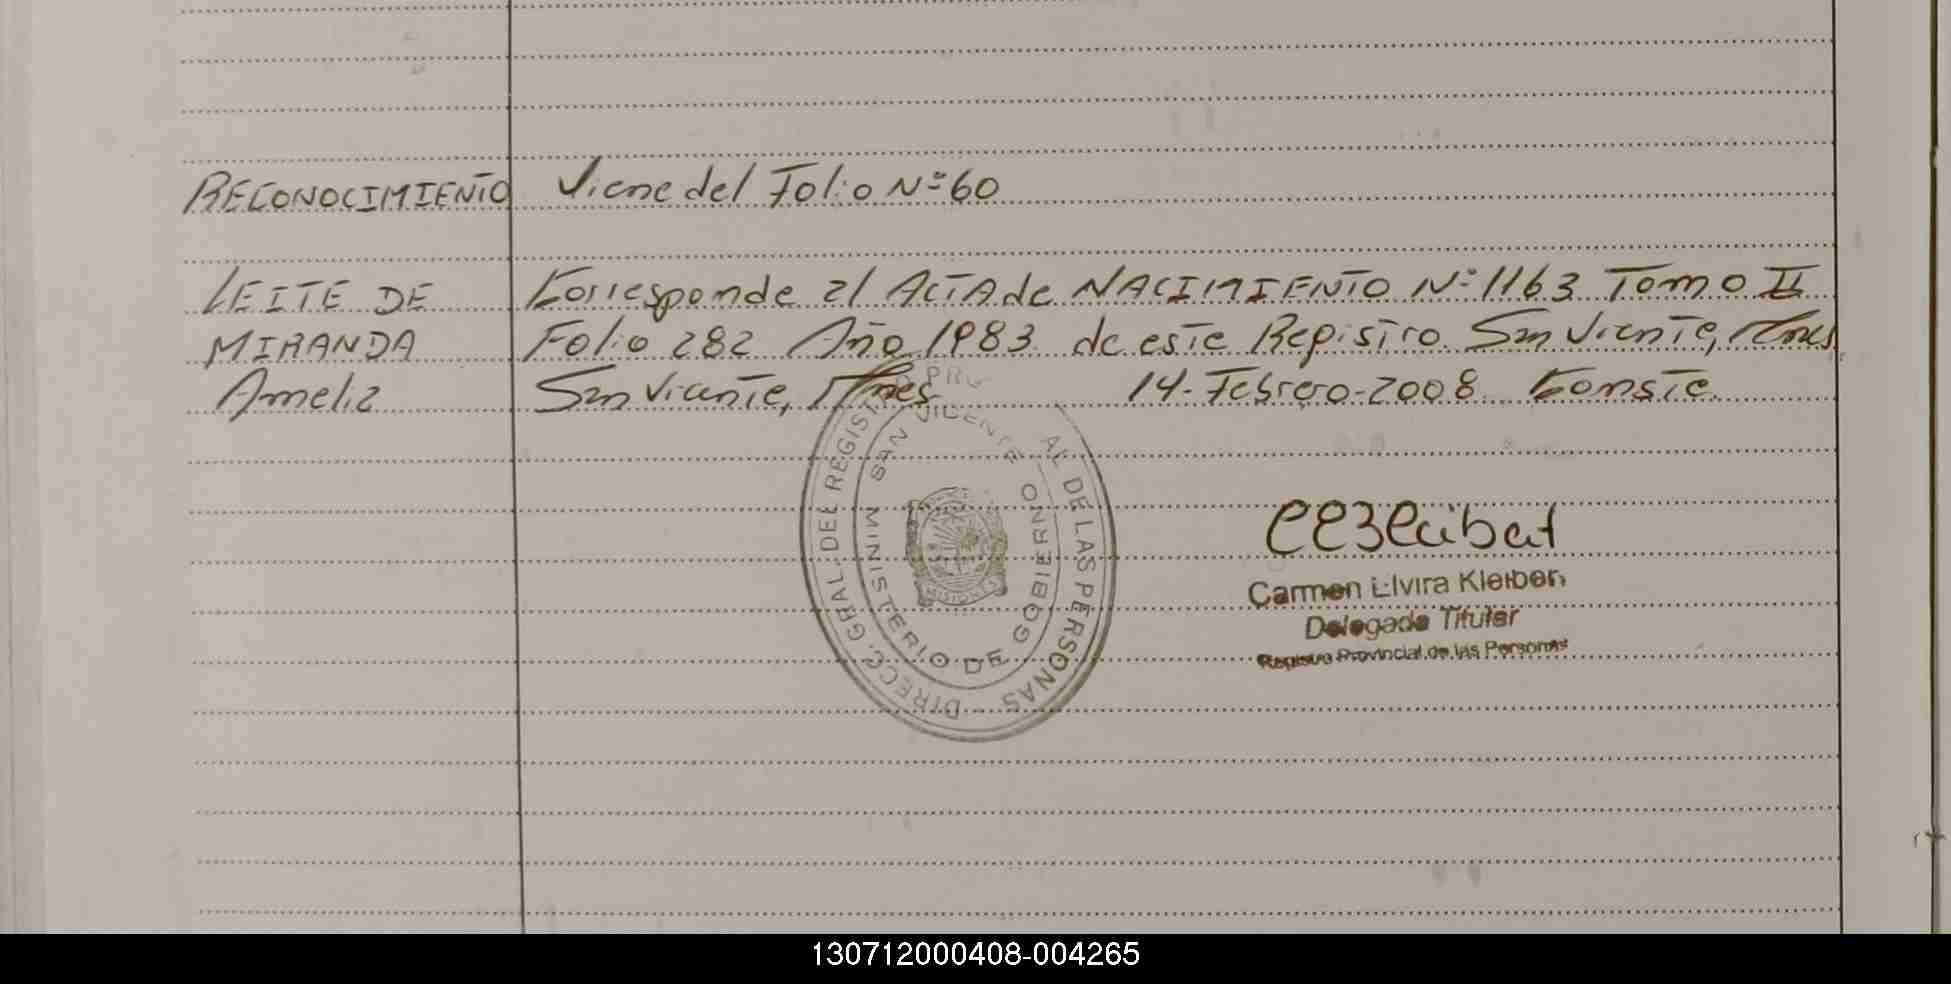 RECONOCIMIENTO Viene del Folio Nº 60
LEITE DE Corresponde al ACTA de NACIMIENTO Nº 1163 Tomo II
MIRANDA Folio 282 Año 1983 de este Registro San Vicente, Mnes
Amelia San Vicente, Mnes 14-Febrero-2008 Conste.
DIRECC. GRAL. DEL REGIST PRO AL DE LAS PERSONAS
SAN VICENTE
MINISTERIO DE GOBIERNO
MISIONES
Carmen Elvira Kleiber
Delegada Titular
Registro Provincial de las Personas
130712000408-004265